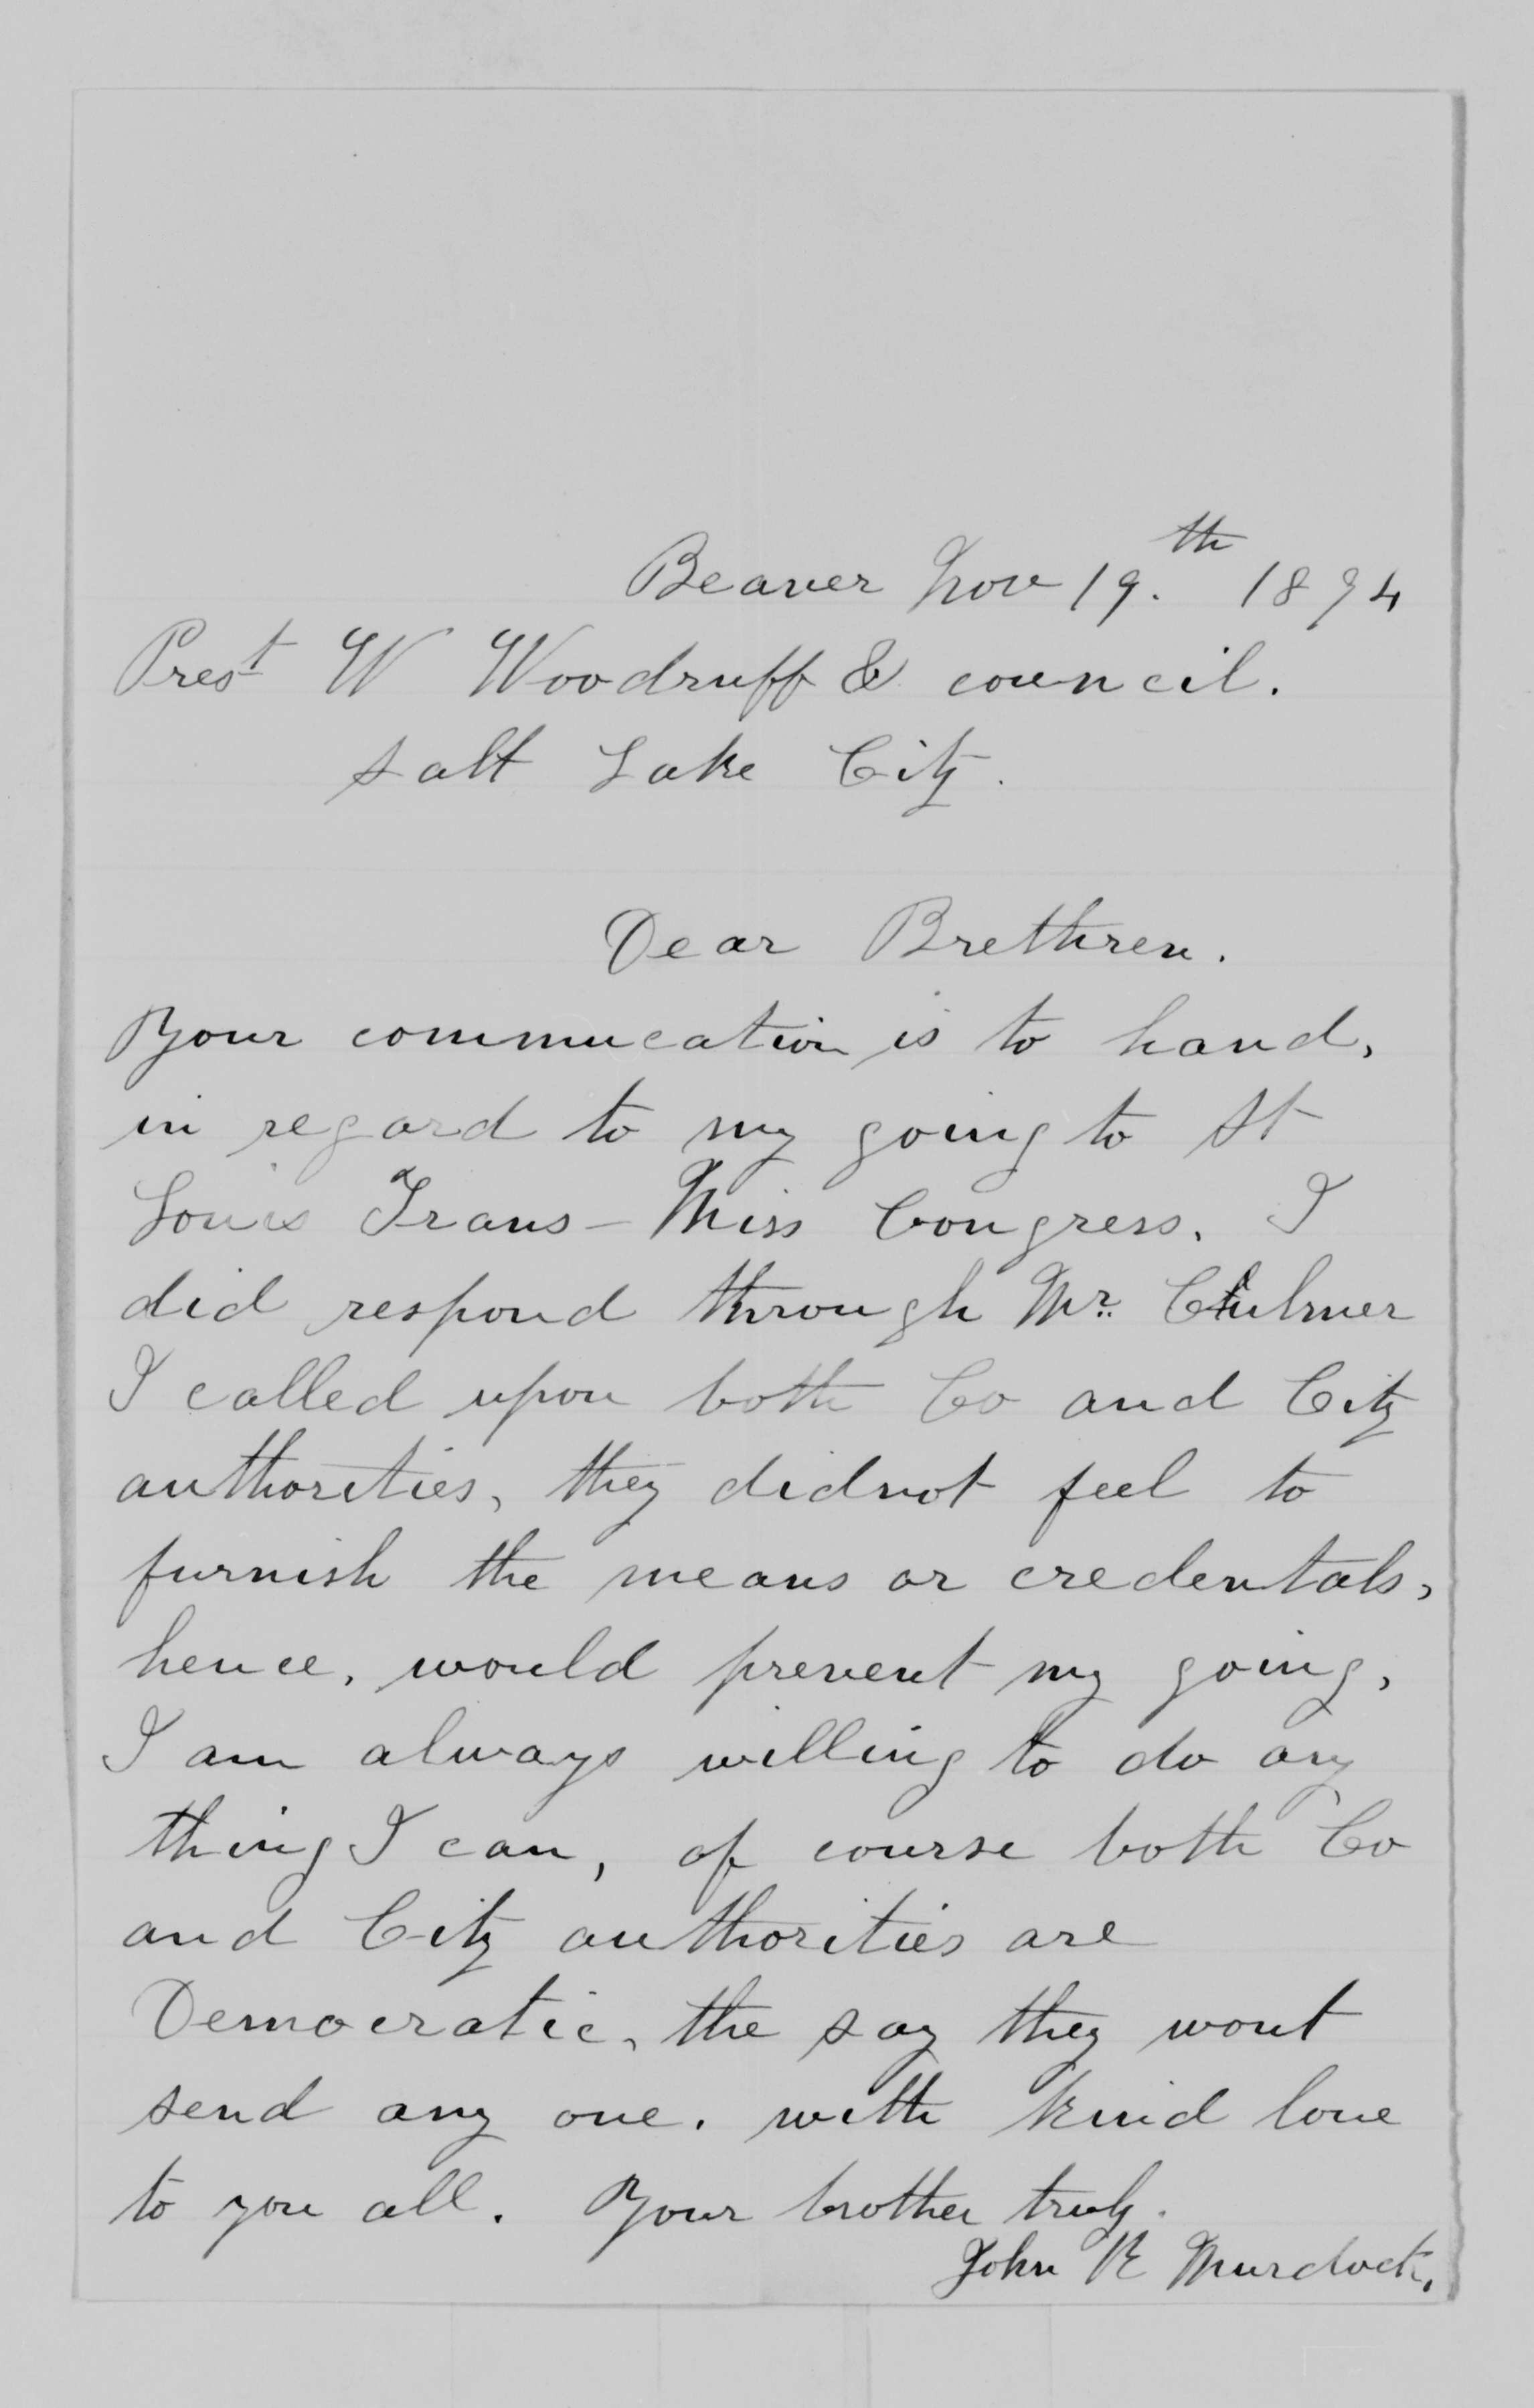 Beaver Nov 19.th 1894
Prest W Woodruff & council.
Salt Lake City.
Dear Brethren.
Your commucation is to hand,
in regard to my going to St
Louis Trans-Miss Congress. I
did respond through Mr. Culmer
I called upon both Co and City
authorities, they didnot feel to
furnish the means or credentals,
hence, would prevent my going,
I am always willing to do any
thing I can, of course both Co
and City authorities are
Democratic, the say they wont
send any one. with kind love
to you all. Your brother truly.
John R Murdock.